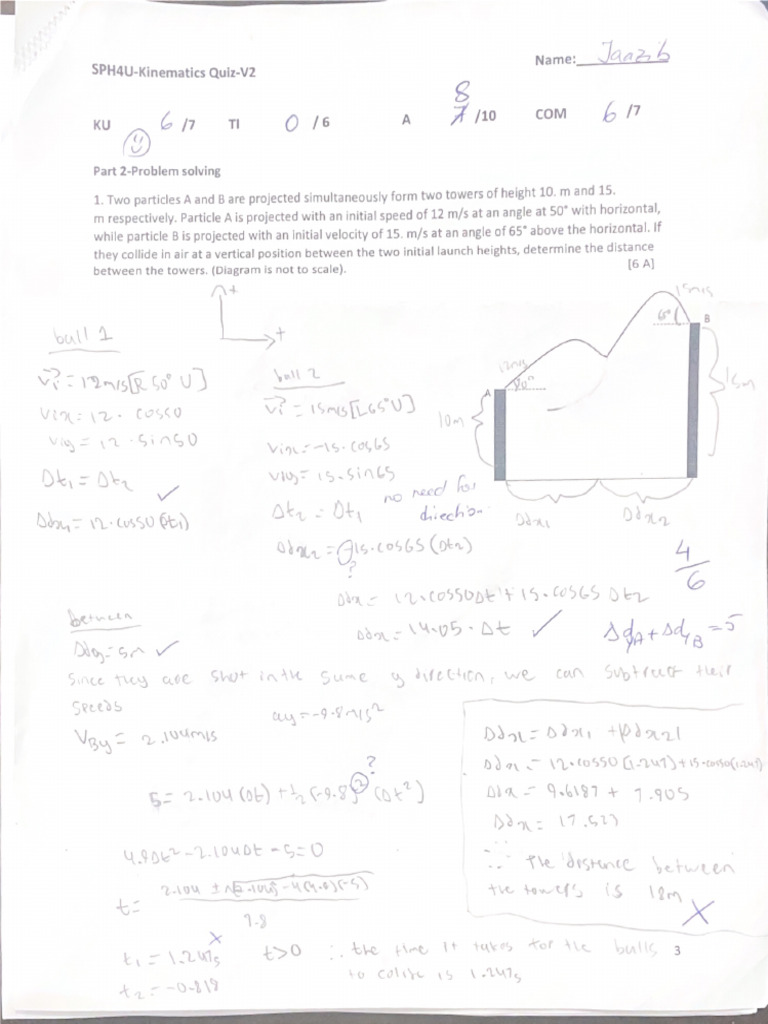 SPH4U-Kinematics Quiz-V2
Name: Jaazib
KU 6 /7 TI 0 /6 A 8 /10 COM 6 /7
Part 2-Problem solving
1. Two particles A and B are projected simultaneously form two towers of height 10. m and 15.
m respectively. Particle A is projected with an initial speed of 12 m/s at an angle at 50° with horizontal,
while particle B is projected with an initial velocity of 15. m/s at an angle of 65° above the horizontal. If
they collide in air at a vertical position between the two initial launch heights, determine the distance
between the towers. (Diagram is not to scale).
[6 A]
+
+
15m/s
65°
B
12m/s
A
10m
15m
Δdx1
Δdx2
ball 1
vi = 12m/s[R 50° U]
Vix = 12 · cos50
Viy = 12 · sin50
Δt1 = Δt2
Δdx1 = 12·cos50 (Δt1)
ball 2
vi = 15m/s [L65°U]
Vix = -15·cos65
Viy = 15·sin65
Δt2 = Δt1
no need for
direction
Δdx2 = -15·cos65 (Δt2)
?
4/6
Δdx = 12·cos50Δt + 15·cos65 Δt2
Δdx = 14.05·Δt
ΔdyA + ΔdyB = 5
between
Δdy = 5m
Since they are shot in the same y direction, we can subtract their
speeds
ay = -9.8m/s²
VBy = 2.104m/s
?
5 = 2.104 (Δt) + ½ (-9.8)² (Δt²)
4.9Δt² - 2.104Δt - 5 = 0
t = 2.104 ± √(2.104)² - 4(4.9)(-5)
9.8
t1 = 1.247s t>0 ∴ the time it takes for the balls
t2 = -0.818 to collide is 1.247s
Δdx = Δdx1 + |Δdx2|
Δdx = 12·cos50 (1.247) + 15·cos50(1.247)
Δdx = 9.6187 + 7.905
Δdx = 17.523
∴ The distance between
the towers is 18m
3